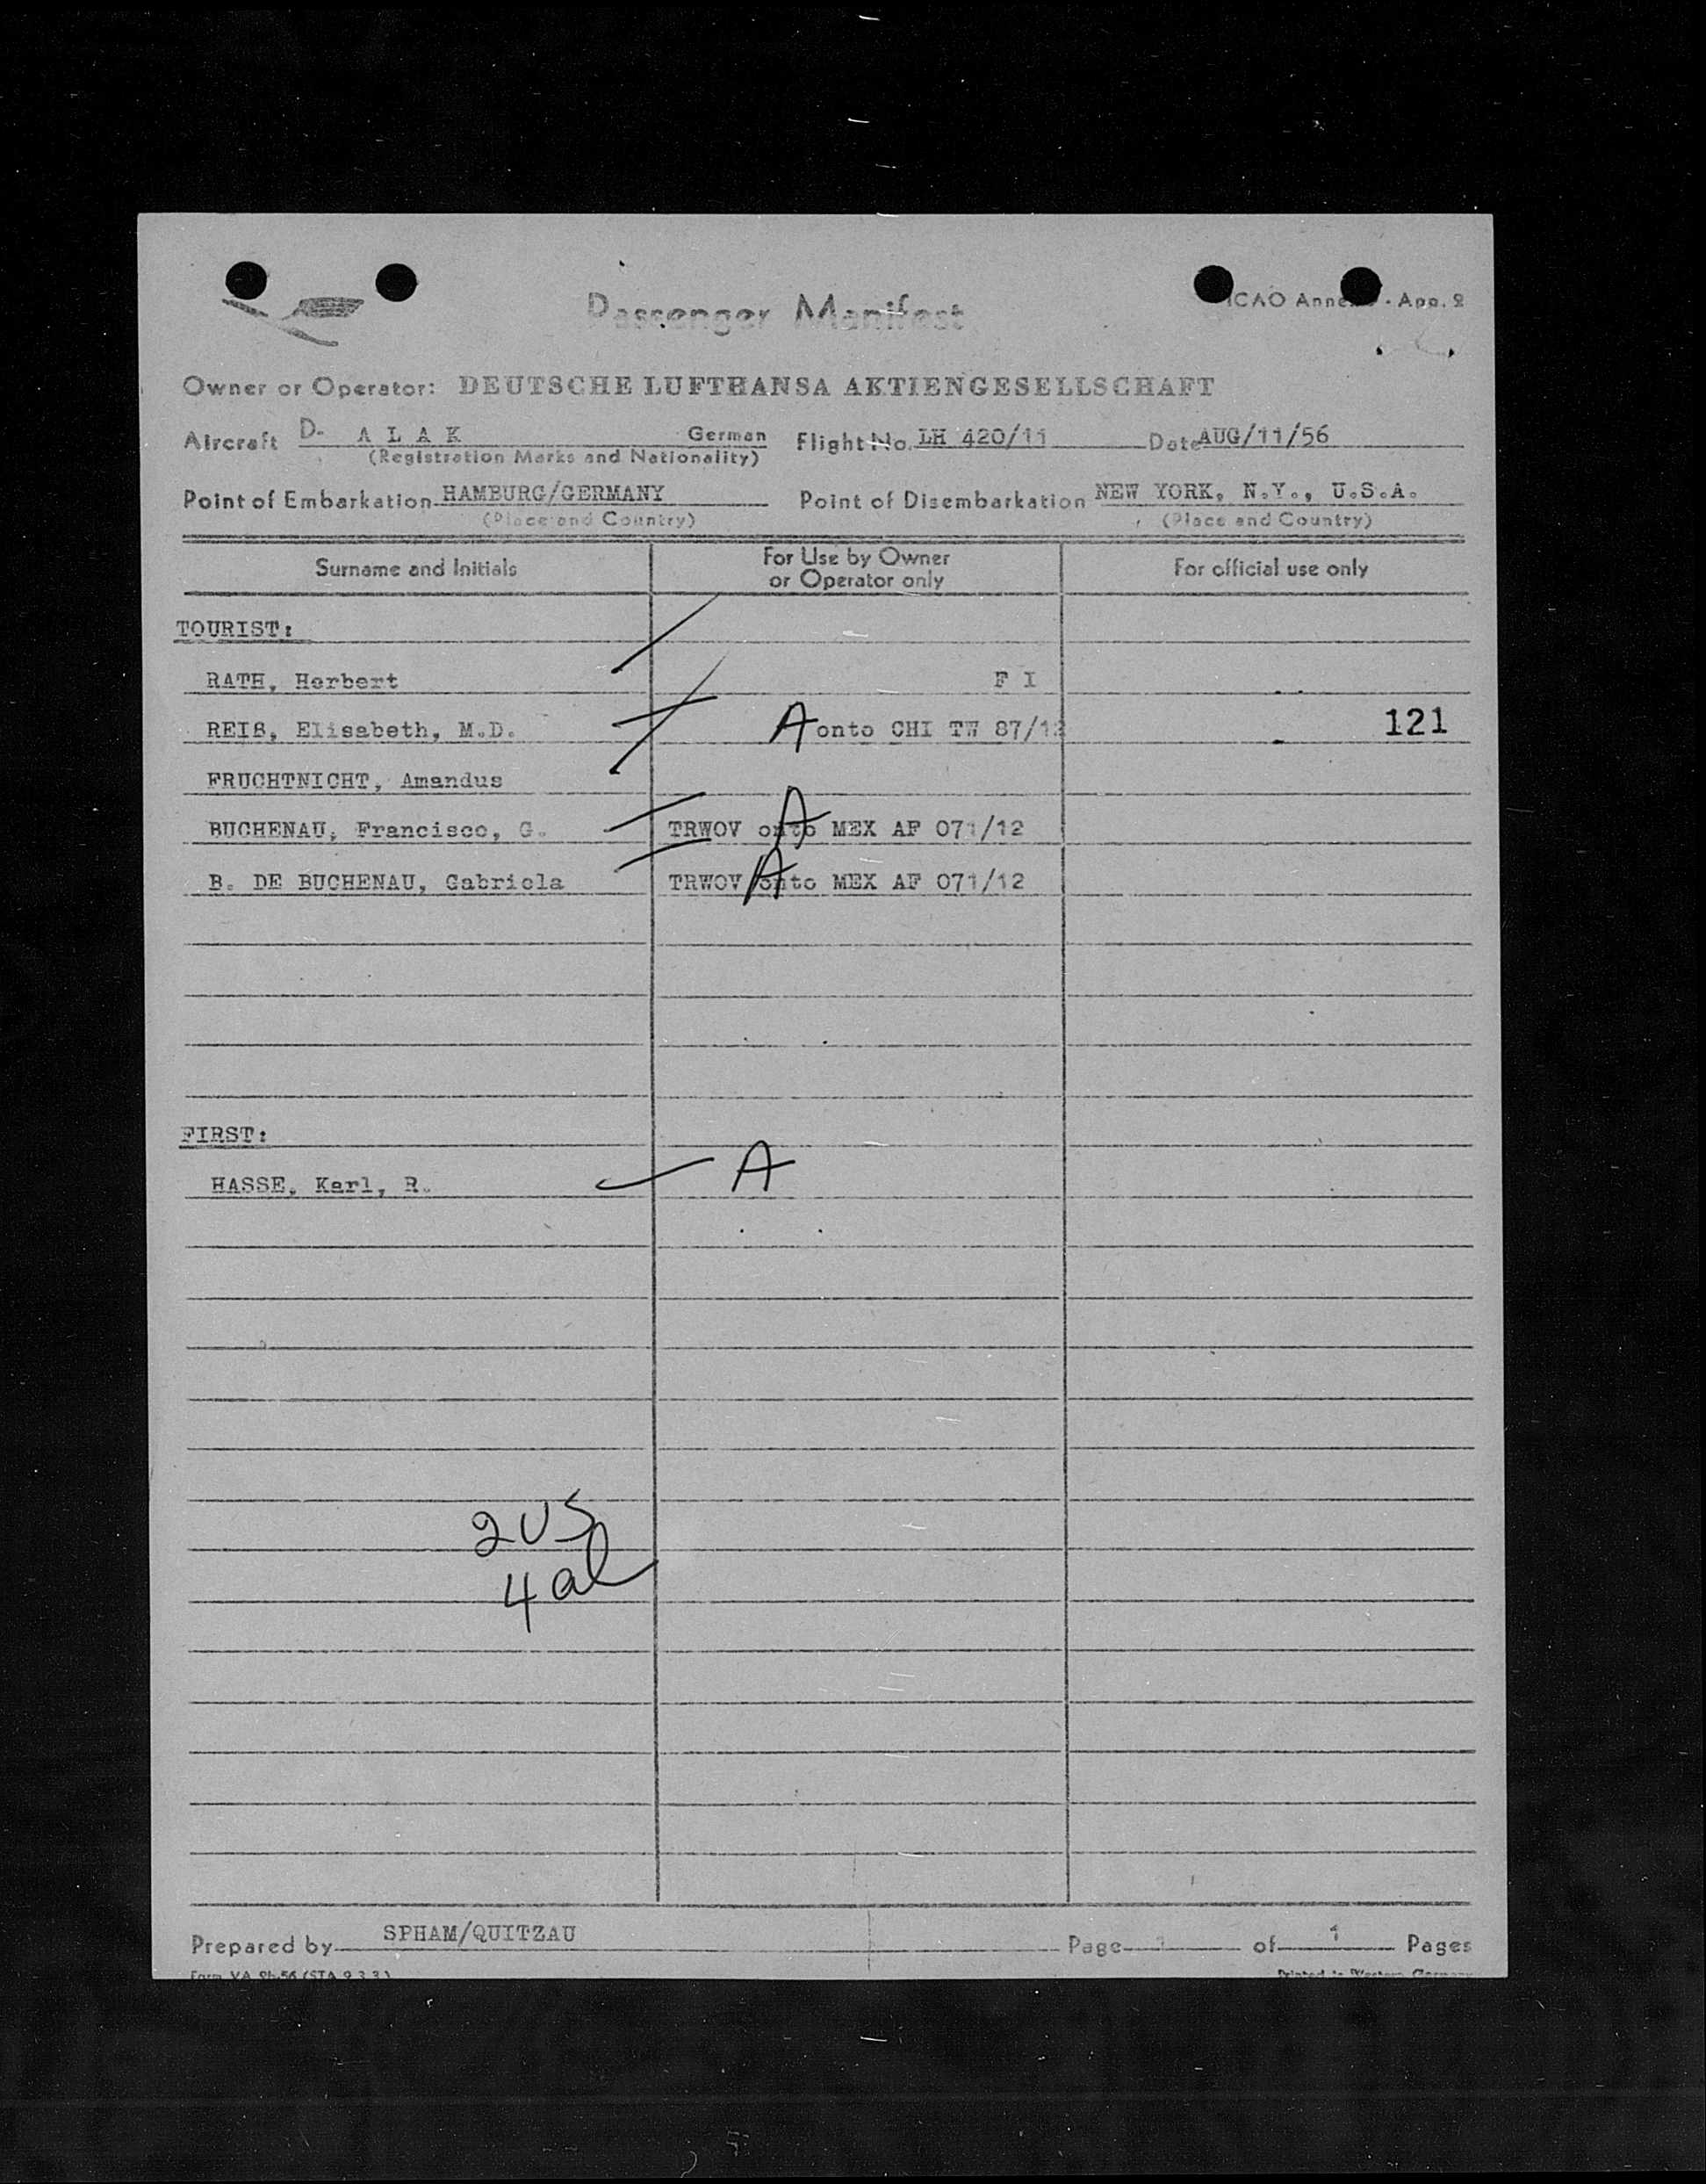 Passenger Manifest
ICAO Anne - App. 2
Owner or Operator: DEUTSCHE LUFTHANSA AKTIENGESELLSCHAFT
Aircraft D- A L A K German Flight No. LH 420/11 Date AUG/11/56
(Registration Marks and Nationality)
Point of Embarkation HAMBURG/GERMANY Point of Disembarkation NEW YORK, N.Y., U.S.A.
(Place and Country) (Place and Country)
Surname and Initials For Use by Owner or Operator only For official use only
TOURIST:
RATH, Herbert F I
REIS, Elisabeth, M.D. A onto CHI TW 87/12 121
FRUCHTNICHT, Amandus
BUCHENAU, Francisco, G. TRWOV onto MEX AF 071/12 A
B. DE BUCHENAU, Gabriela TRWOV onto MEX AF 071/12 A
FIRST:
HASSE, Karl, R. A
2 US
4 al
Prepared by SPHAM/QUITZAU Page 1 of 1 Pages
Printed in Western Germany